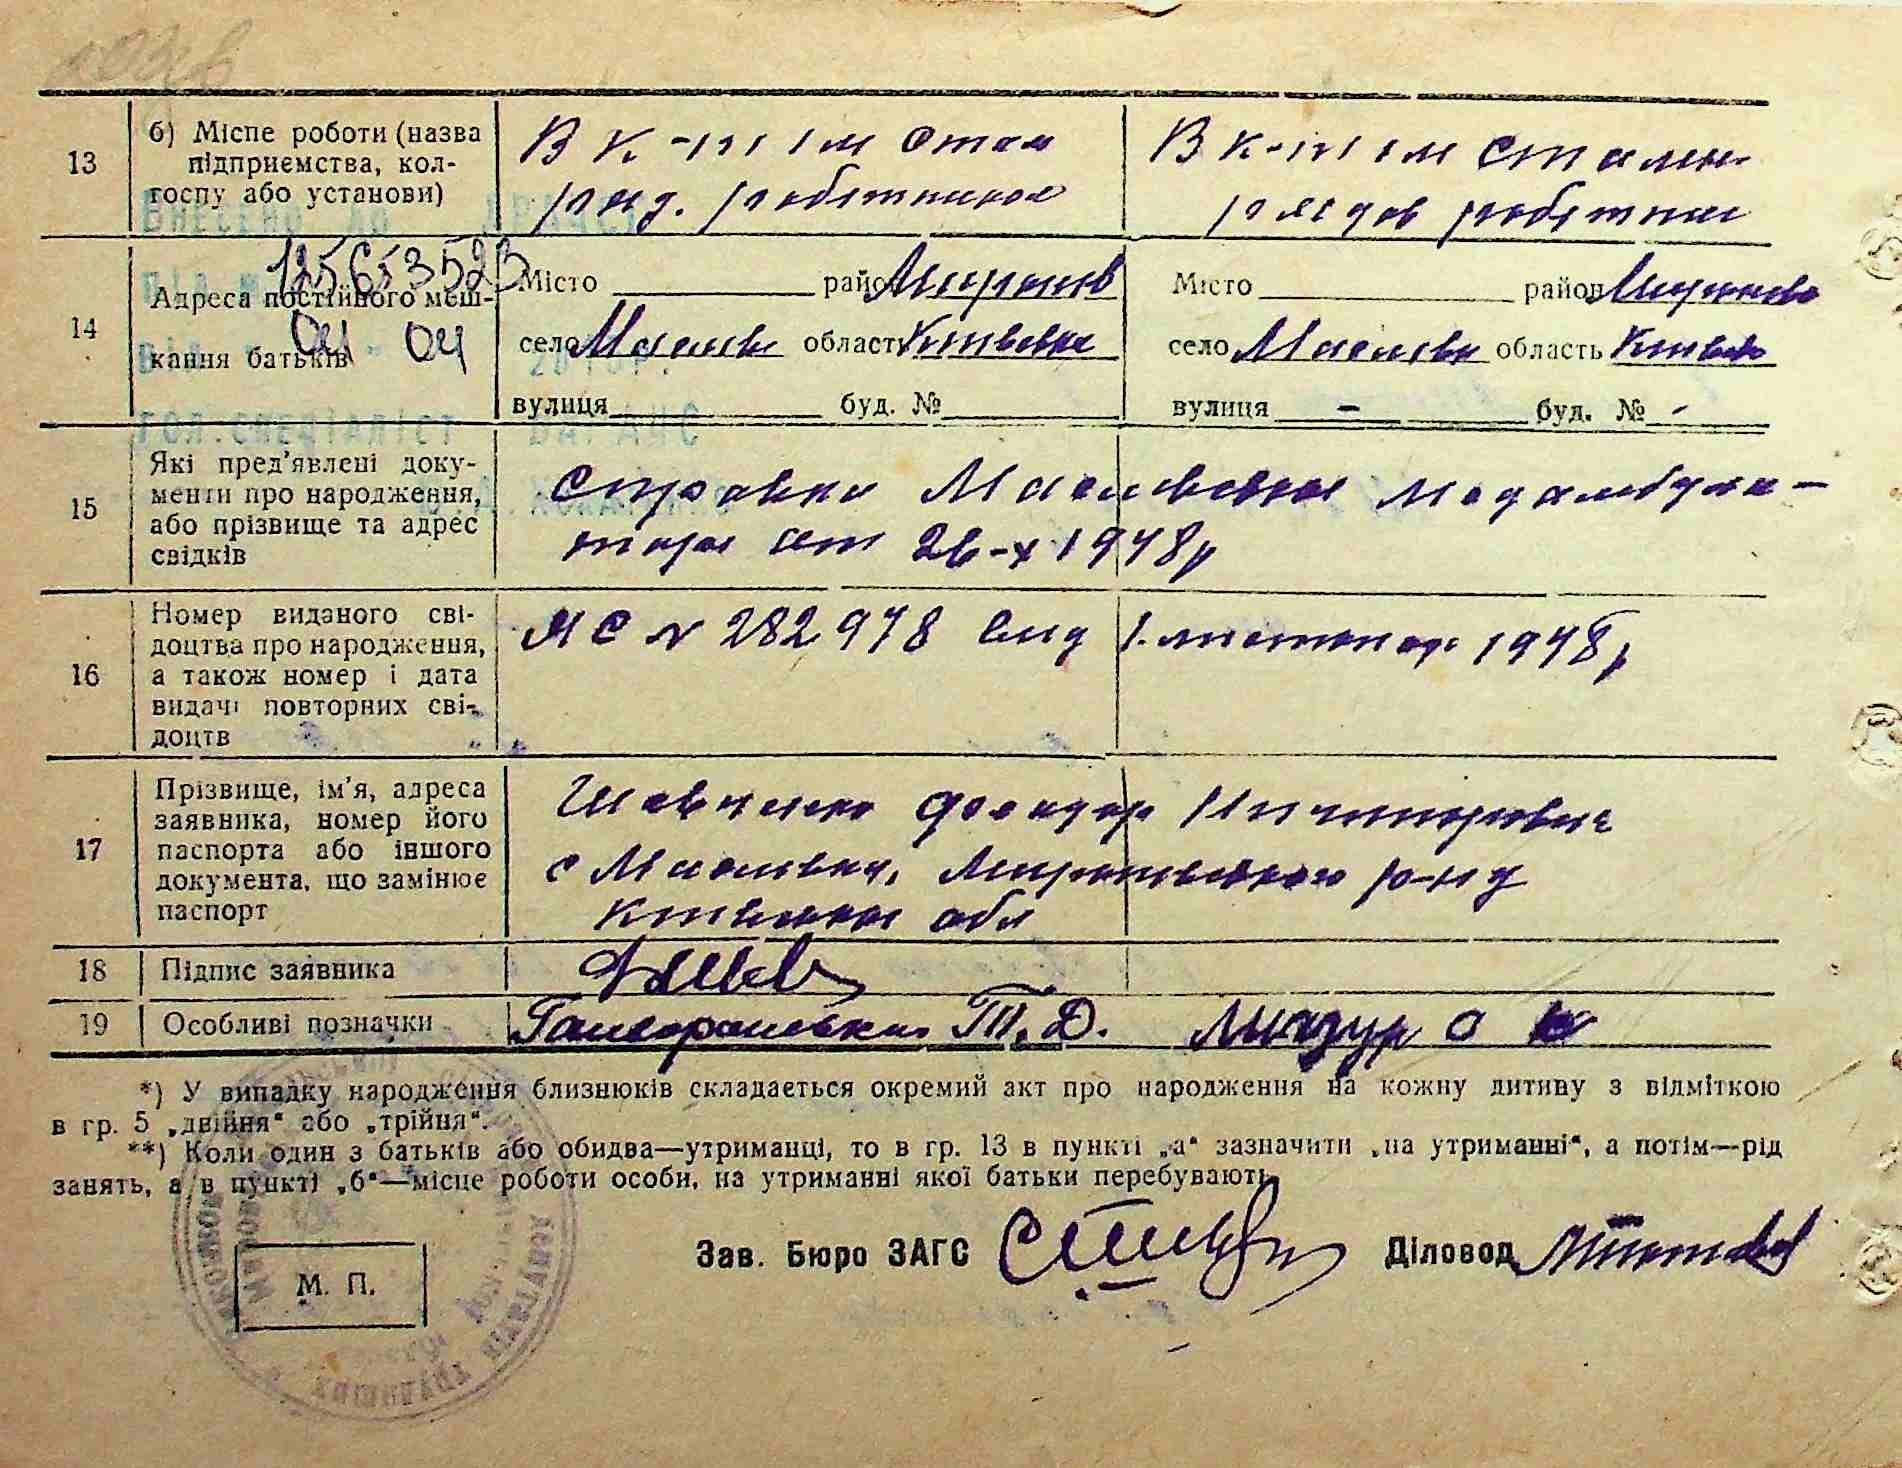 13
б) Місце роботи (назва
підприємства, кол-
госпу або установи)
В к-пі ім Стал
ряд. робітником
В к-пі ім Сталін
рядов робітниц
ВНЕСЕНО ДО
125653523
14
Адреса постійного меш-
кання батьків
04 04
Місто район Миронів
село Маслівк область Київська
вулиця буд. №
Місто район Миронівс
село Маслівк область Київськ
вулиця - буд. № -
ГОЛ.СПЕЦІАЛІСТ
15
Які пред'явлені доку-
менти про народження,
або прізвище та адрес
свідків
Справка Маслівської медамбула-
торії від 26-х 1948р
16
Номер виданого сві-
доцтва про народження,
а також номер і дата
видачі повторних сві-
доцтв
ЯС № 282978 від 1. листопад 1948р
17
Прізвище, ім'я, адреса
заявника, номер його
паспорта або іншого
документа, що замінює
паспорт
Шевченко Федор Ничипорович
с Маслівка, Миронівського р-ну
Київської обл
18
Підпис заявника
19
Особливі позначки
Т. Д.
*) У випадку народження близнюків складається окремий акт про народження на кожну дитину з відміткою
в гр. 5 „двійня“ або „трійня“.
**) Коли один з батьків або обидва—утриманці, то в гр. 13 в пункті „а“ зазначити „на утриманні“, а потім—рід
занять, а в пункті „б“—місце роботи особи, на утриманні якої батьки перебувають.
Зав. Бюро ЗАГС
Діловод
М. П.